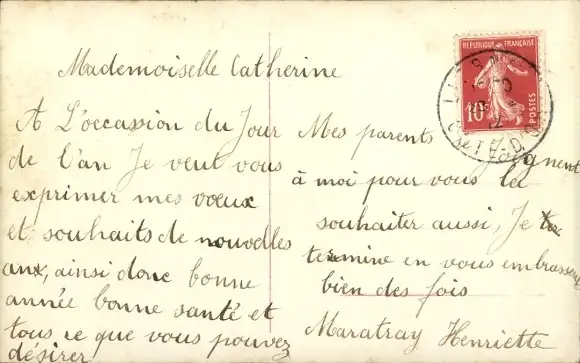 Mademoiselle Catherine
A L'occassion du Jour
de l'an Je veut vous
exprimer mes vœux
et souhaits de nouvdles
anx, ainsi donc bonne
année bonne santé et
tous ce que vous pouvez
désirer
Mes parents gnent
à moi pour vous la
souhaiter aussi, Je
termine en vous embrassent
bien des fois
Maratray Henriette
REPUBLIQUE FRANÇAISE
10c
POSTES